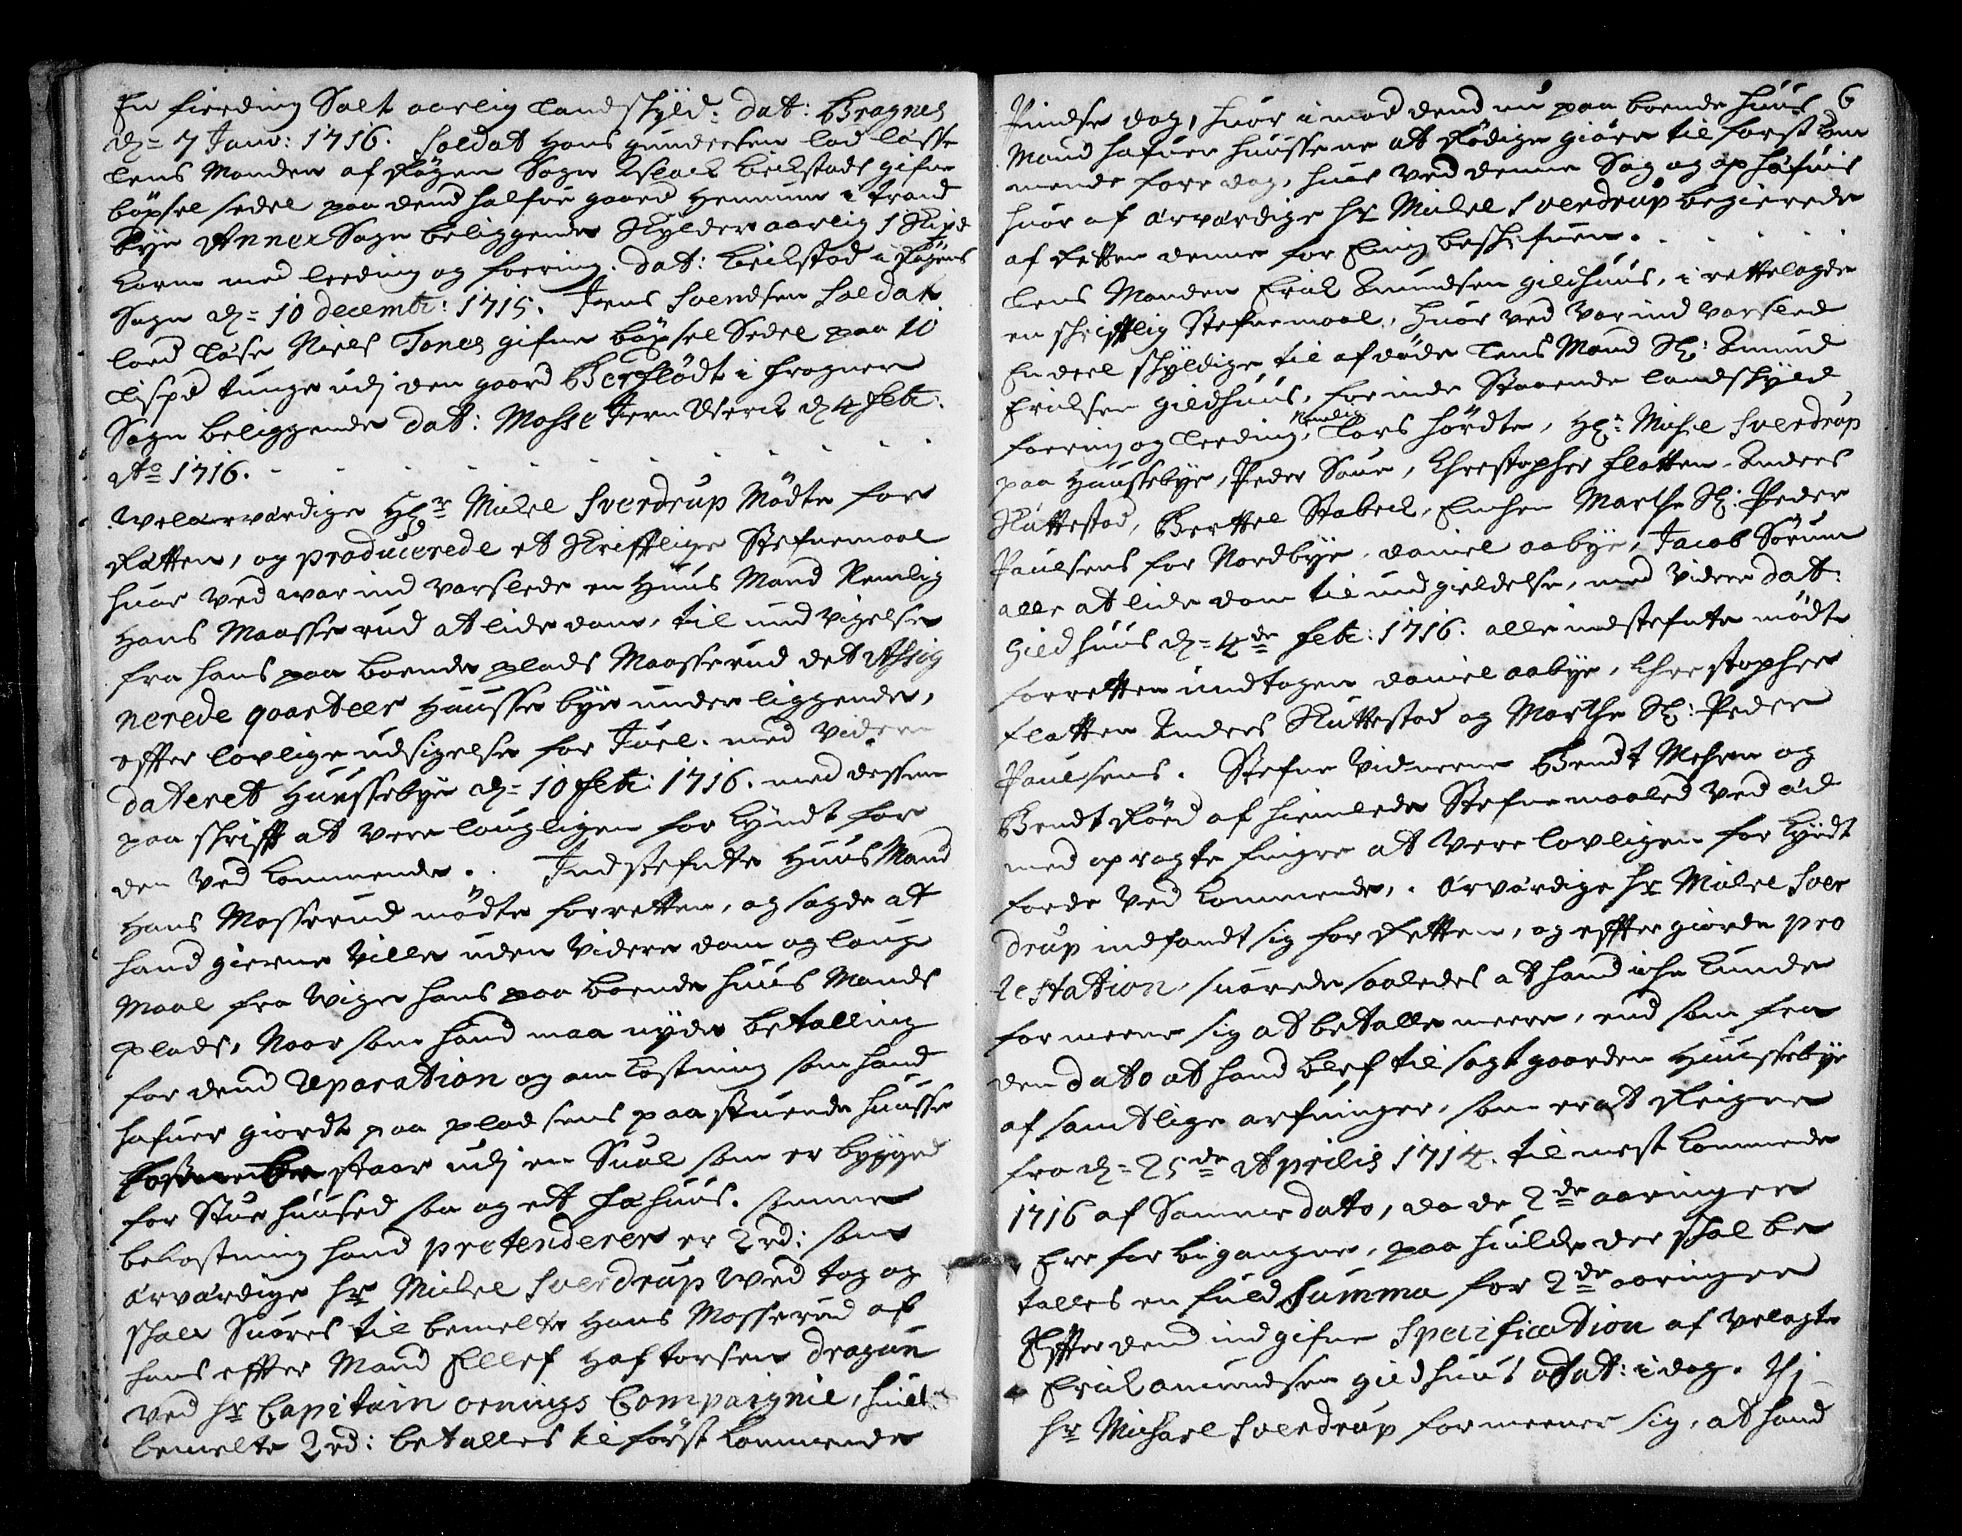 En fierding Salt aarlig Landskyld: dat: Bragnes
d= 7 Janv: 1716. Soldat Hans Gundersen lod læsse
Lens Manden af Røgen Sogn Aslack Beckstads gifne
bøxsel sedel paa dend halfve gaard Hennum i Trand
bye Annex Sogn beliggende Skylder aarlig 1 Skipd
Korn med leeding og foering. dat: Beckstad i Røgens
Sogn d= 10 decembr: 1715. Jens Svendsen Soldat
loed læse Niels Toners gifne bøxsel Sedel paa 10
Lispd tunge udj den gaard Berflødt i Frogner
Sogn beliggende dat: Mosse Jern Werck d 4 Febr:
Ao 1716.
Welærværdige Hr Mickel Sverdrup Mødte for
Rætten, og producerede et Skrifftlige Stefnemaal
huor ved war ind varslede en Huus Mand Nemlig
Hans Maasserud at lide dom, til und vigelse
fra hans paa boende plads Maasserud det Assig
nerede qvarteer Haussebye under liggende,
effter lovlige udsigelse for Juel. med videre
dateret Haussebye d= 10 Febr: 1716. med dessen
paa skrifft at vere lougligen for kyndt for
den ved kommende. Indstefnte Huus Mand
Hans Mosserud mødte for retten, og sagde at
hand gierne ville uden videre dom og loug
Maal fra wige hans paa boende huus Mands
plads, Naar som hand maa nyde betalling
for dend Reparation og om kostning som hand
hafuer giordt paa pladsens paa stuende huusse
staar udj en Sval som er bygged
for Stue huused saa og et fæhuus. samme
bekostning hand prætenderer er 2 rd: som
ærværdige hr Mickel Sverdrup wed tog og
skall Svares til bemelte Hans Mosserud af
hans effter Mand Ellef Haftorsen dragun
ved hr Capitain Ornings Compaignie, huilke
bemelte 2 rd: betalles til først kommende
6
Pindse dag, huor imod dend nu paa boende huus
Mand hafuer huussene at Rødige giøre til først kom
mende fare dag, huer ved denne Sag og op hæfuis
huor af ærværdige hr Mickel Sverdrup begierede
af Retten denne for Eling beskrefuen.
Lens Manden Erick Amundsen Gildhuus, i rettelagde
en skrifftlig Stefnemaal, huor ved var ind varslede
En deel skyldige til afdøde Lens Mand Sl: Amund
Ericksen Gildhuus, for inde Staaende landskyld
foering og leeding, Nemlig Lars Hørdte, Hr: Mickel Sverdrup
paa Haussebye, Peder Saue, Christopher Flatten, Anders
Skuttestad, Berttel Stabeck, Enchen Marthe Sl: Peder
Paulsens for Nordbye, daniel aabye, Jacob Sørum
alle at lide dom til und gieldelse, med videre dat:
Gildhuus d= 4de Febr: 1716. alle indstefnte mødte
for retten undtagen daniel aabye, Christopher
Flatten Anders Skuttestad og Marthe Sl: Peder
Paulsens. Stefne Vidnerne Bendt Mehren og
Bendt Røed af hiemlede Stefnemaaled ved æd
med op ragte fingre at vere lovligen for kyndt
for de ved kommende. Ærværdige hr Mickel Sver
drup indfandt sig for Retten, og effter giorde pro
testation, suarede saaledes at hand iche kunde
formeene sig at betalle meere, end som fra
den dato at hand blef til sagt gaarden Haussebye
af samtlige arfuinger, som er at Reigne
fra d= 25de Aprilis 1714. til nest kommende
1716 af Samme dato, da de 2de aaringer
Ere for bigangne, paa huilke der skal be
talles en fuld Summa for 2de aaringer
Effter dend indgifne Specification af velagte
Erick Amundsen Gildhuus dat: i dag. Thj
hr Michael Sverdrup formeener sig, at hand